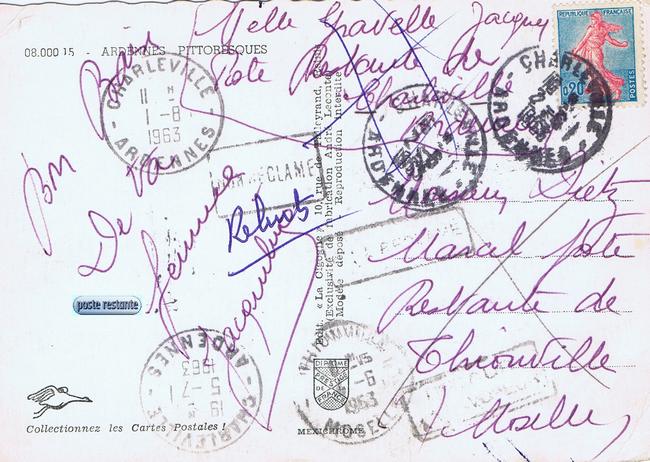 08.000 15 - ARDENNES PITTORESQUES
Melle Gravelle Jacquey
Poste Restante de
Charleville
Ardennes
REPUBLIQUE FRANÇAISE
0,20
POSTES
CHARLEVILLE
11 H
1-8
1963
ARDENNES
CHARLEVILLE
ARDENNES
CHARLEVILLE
ARDENNES
NON RECLAMÉ
Bon Baiser
De Va
femme
Jacqueline
Rebuts
Monsieur Dietz
Marcel Poste
Restante de
Thionville
Moselle
poste restante
Edit. « La Cigogne », 10, rue de Talleyrand,
(Exclusivité de fabrication André Leconte)
Modèle déposé Reproduction Interdite
CHARLEVILLE
19 H
5-7
1963
ARDENNES
THIONVILLE
1963
MOSELLE
DIPLOME
PRESTIGE
DE LA
FRANCE
MEXICHROME
Collectionnez les Cartes Postales !